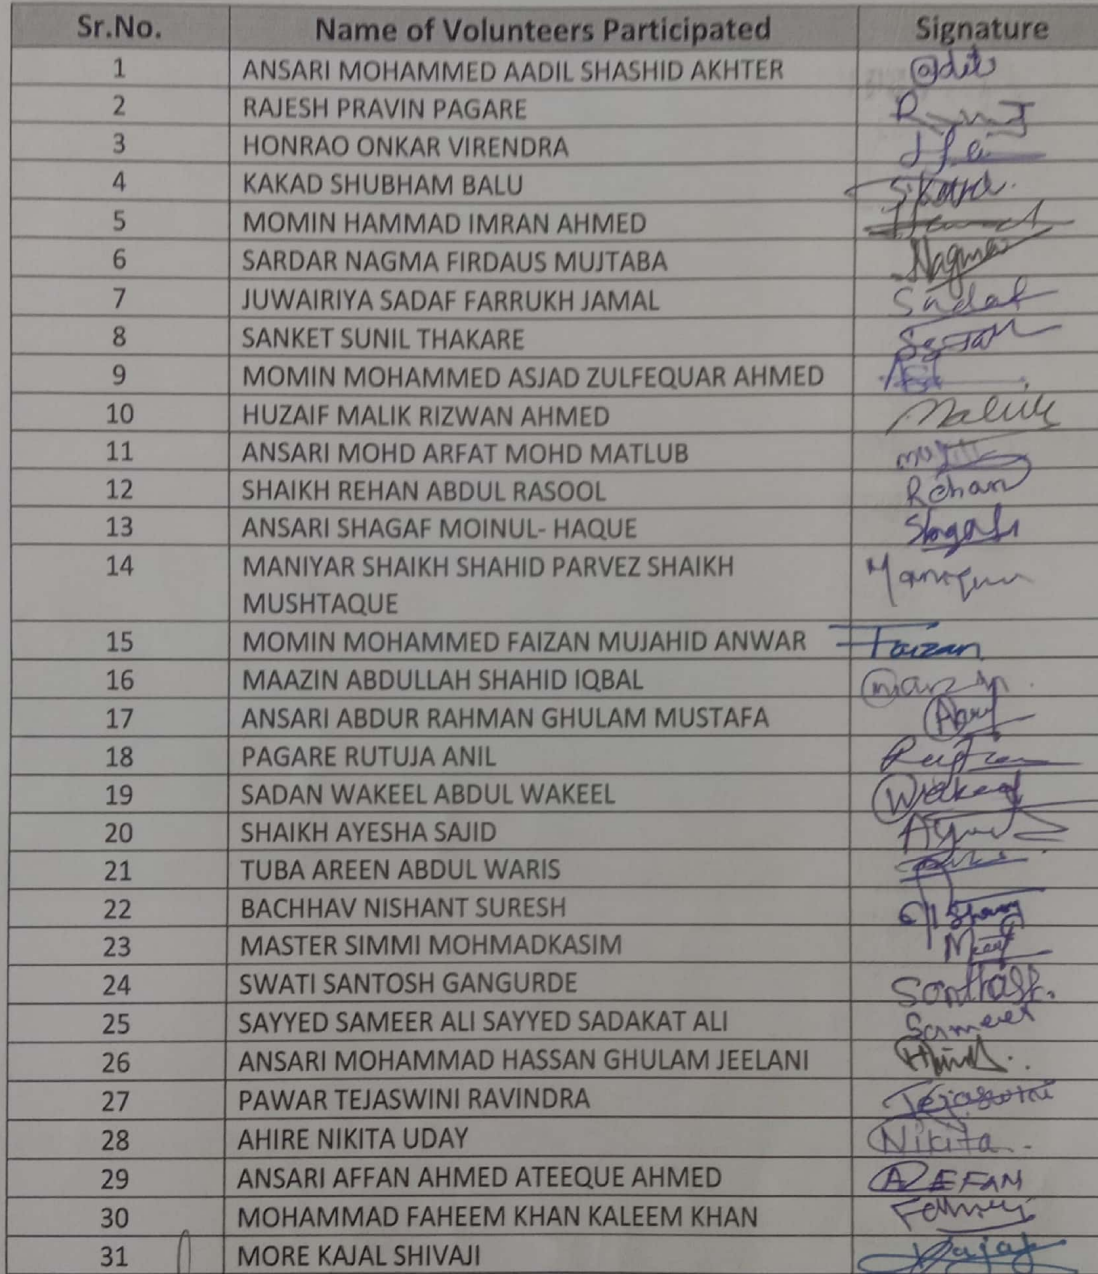 Sr.No. Name of Volunteers Participated Signature
1 ANSARI MOHAMMED AADIL SHASHID AKHTER
2 RAJESH PRAVIN PAGARE
3 HONRAO ONKAR VIRENDRA
4 KAKAD SHUBHAM BALU
5 MOMIN HAMMAD IMRAN AHMED
6 SARDAR NAGMA FIRDAUS MUJTABA Nagma
7 JUWAIRIYA SADAF FARRUKH JAMAL Sadaf
8 SANKET SUNIL THAKARE
9 MOMIN MOHAMMED ASJAD ZULFEQUAR AHMED
10 HUZAIF MALIK RIZWAN AHMED Malik
11 ANSARI MOHD ARFAT MOHD MATLUB
12 SHAIKH REHAN ABDUL RASOOL Rehan
13 ANSARI SHAGAF MOINUL- HAQUE Shagaf
14 MANIYAR SHAIKH SHAHID PARVEZ SHAIKH
MUSHTAQUE
15 MOMIN MOHAMMED FAIZAN MUJAHID ANWAR Faizan
16 MAAZIN ABDULLAH SHAHID IQBAL
17 ANSARI ABDUR RAHMAN GHULAM MUSTAFA
18 PAGARE RUTUJA ANIL
19 SADAN WAKEEL ABDUL WAKEEL Wakeel
20 SHAIKH AYESHA SAJID
21 TUBA AREEN ABDUL WARIS
22 BACHHAV NISHANT SURESH
23 MASTER SIMMI MOHMADKASIM
24 SWATI SANTOSH GANGURDE
25 SAYYED SAMEER ALI SAYYED SADAKAT ALI Sameer
26 ANSARI MOHAMMAD HASSAN GHULAM JEELANI
27 PAWAR TEJASWINI RAVINDRA Tejaswini
28 AHIRE NIKITA UDAY Nikita
29 ANSARI AFFAN AHMED ATEEQUE AHMED
30 MOHAMMAD FAHEEM KHAN KALEEM KHAN
31 MORE KAJAL SHIVAJI Kajal